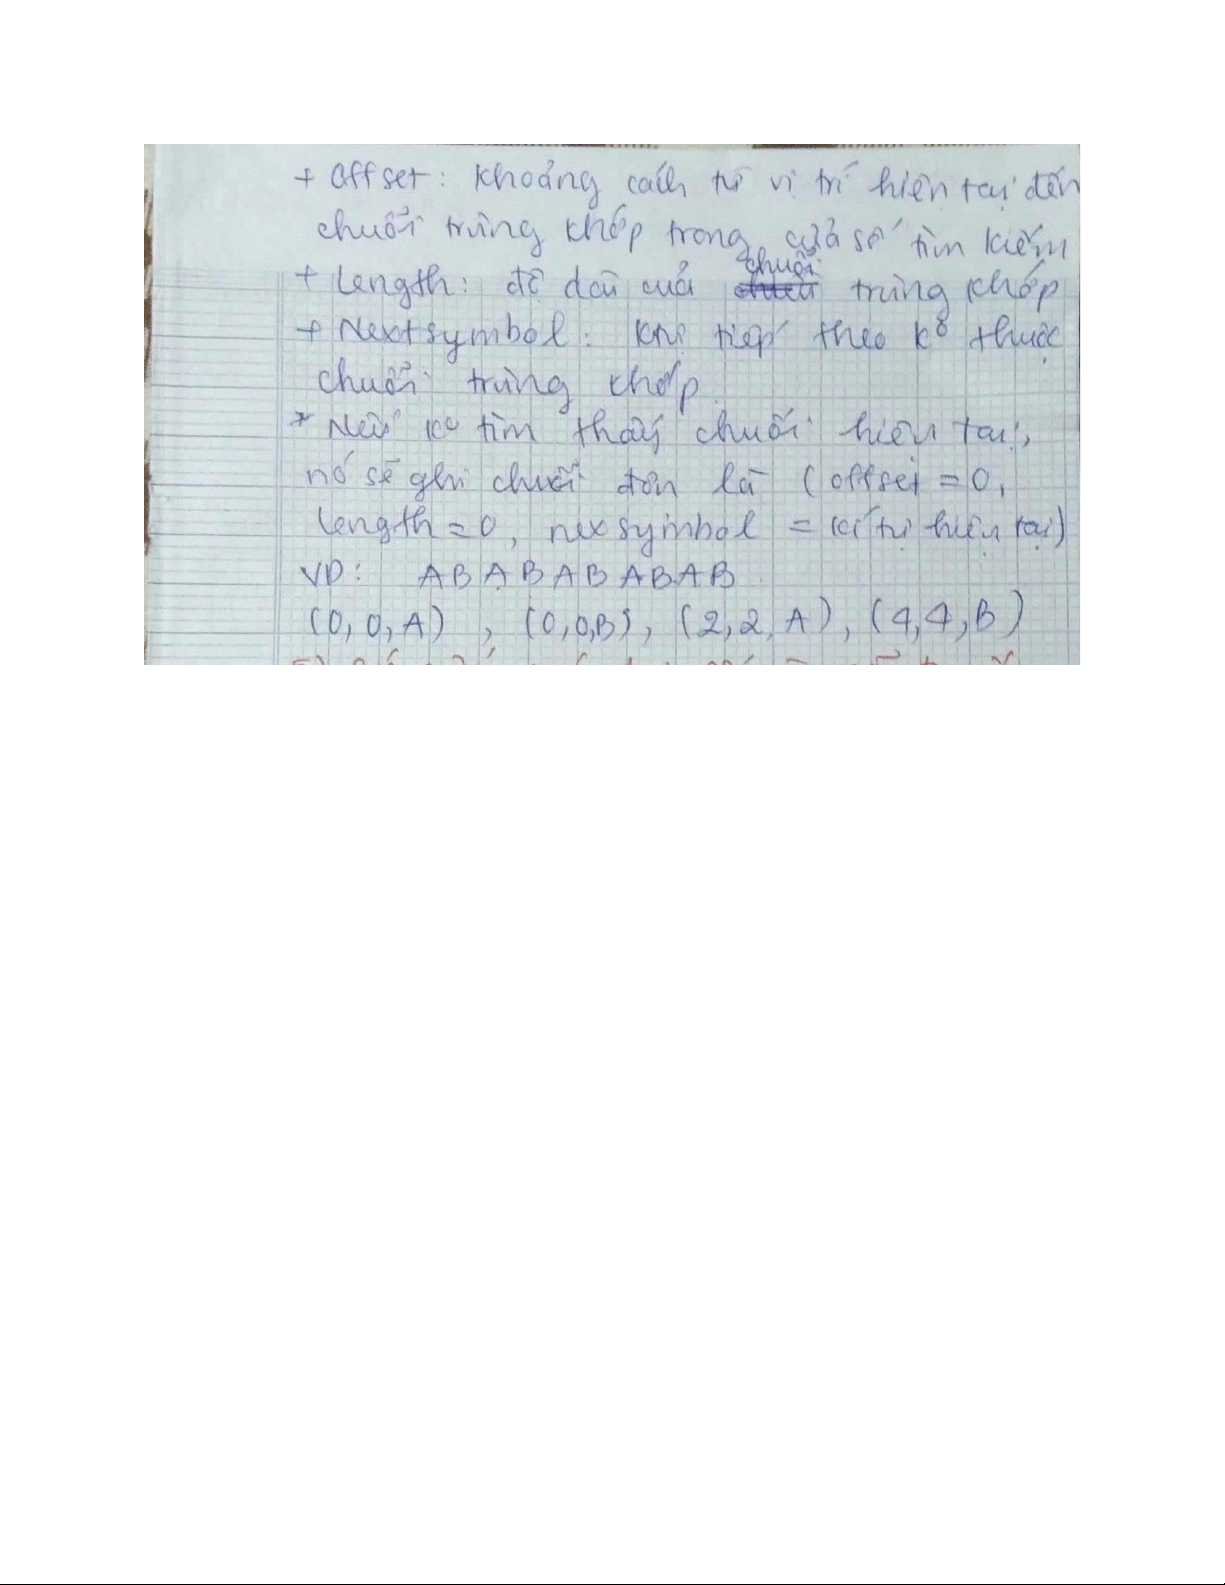 + Offset: Khoảng cách từ vị trí hiện tại đến
chuỗi trùng khớp trong cửa sổ tìm kiếm
+ Length: độ dài của chuỗi trùng khớp
+ Nextsymbol: Khị tiếp theo k° thuộc
chuỗi trùng khớp.
* Nếu k° tìm thấy chuỗi hiện tại,
nó sẽ ghi chuỗi đơn là (offset = 0,
length = 0, nexsymbol = kí tự hiện tại)
VD: ABABABABAB
(0, 0, A) , (0,0,B), (2,2,A), (4,4,B)